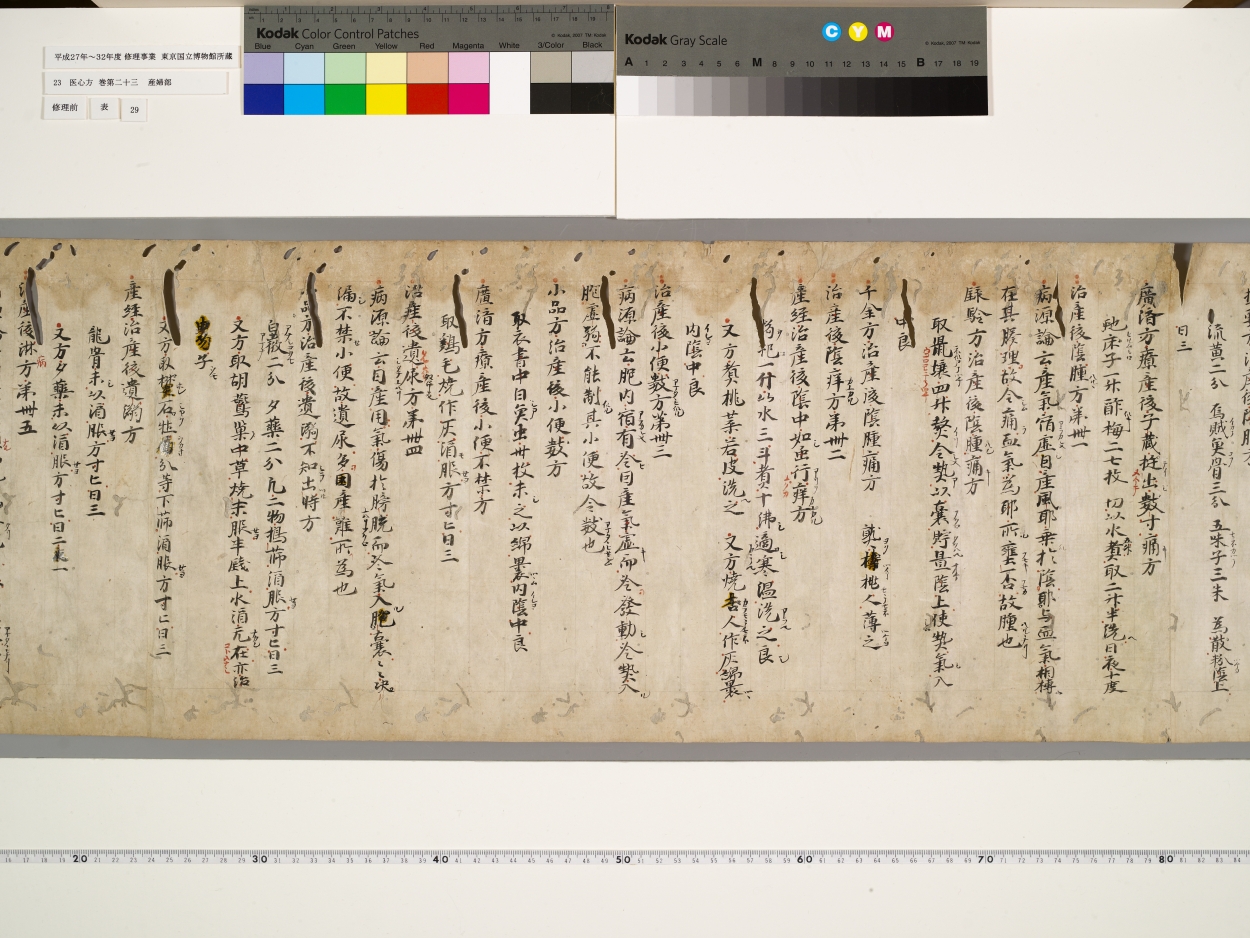 平成27年～32年度 修理事業 東京国立博物館所蔵
23 医心方 巻第二十三 産婦部
修理前 表 29
Kodak Color Control Patches
Blue Cyan Green Yellow Red Magenta White 3/Color Black
Kodak Gray Scale
C Y M
A 1 2 3 4 5 6 M 8 9 10 11 12 13 14 15 B 17 18 19
流黄二分 烏賊魚骨二分 五味子三朱 為散粉陰上
日三
廣済方療産後子蔵挺出数寸痛方
虵床子一升 酢梅二七枚 切以水煮取二升半洗日夜十度
治産後陰腫方第卌一
病源論云産氣宿虚因産風耶乗於陰耶与血氣相搏
在其腠理故令痛血氣為耶所壅否故腫也
録験方治産後陰腫痛方
取鼠壌四升熬令熱以囊貯置陰上使熱氣入
中良
千金方治産後陰腫痛方 熟擣桃人薄之
治産後陰痒方第卌二
産経治産後陰中如虫行痒方
枸杞一什以水三斗煮十沸適寒温洗之良
又方煮桃葉若皮洗之 又方焼杏人作灰綿裹
内陰中良
治産後小便数方第卌三
病源論云胞内宿有冷因産氣虚而冷發動冷熱入
胞虚弱不能制其小便故令数也
小品方治産後小便数方
取衣書中白魚虫卅枚末之以綿裹内陰中良
廣済方療産後小便不禁方
取鶏毛焼作灰酒服方寸匕日三
治産後遺尿方第卌四
病源論云因産用氣傷於膀胱而冷氣入胞囊々決
漏不禁小便故遺尿多因産難所為也
小品方治産後遺溺不知出時方
白薇一分 夕薬二分 凡二物搗篩酒服方寸匕日三
又方取胡鷰巣中草焼末服半銭上水酒无在亦治
男子
又方
分等下篩酒服方寸匕日三
産経治産後遺溺方
龍骨末以酒服方寸匕日三
又方夕薬末以酒服方寸匕日二夜一
治産後淋方第卌五
20 30 40 50 60 70 80